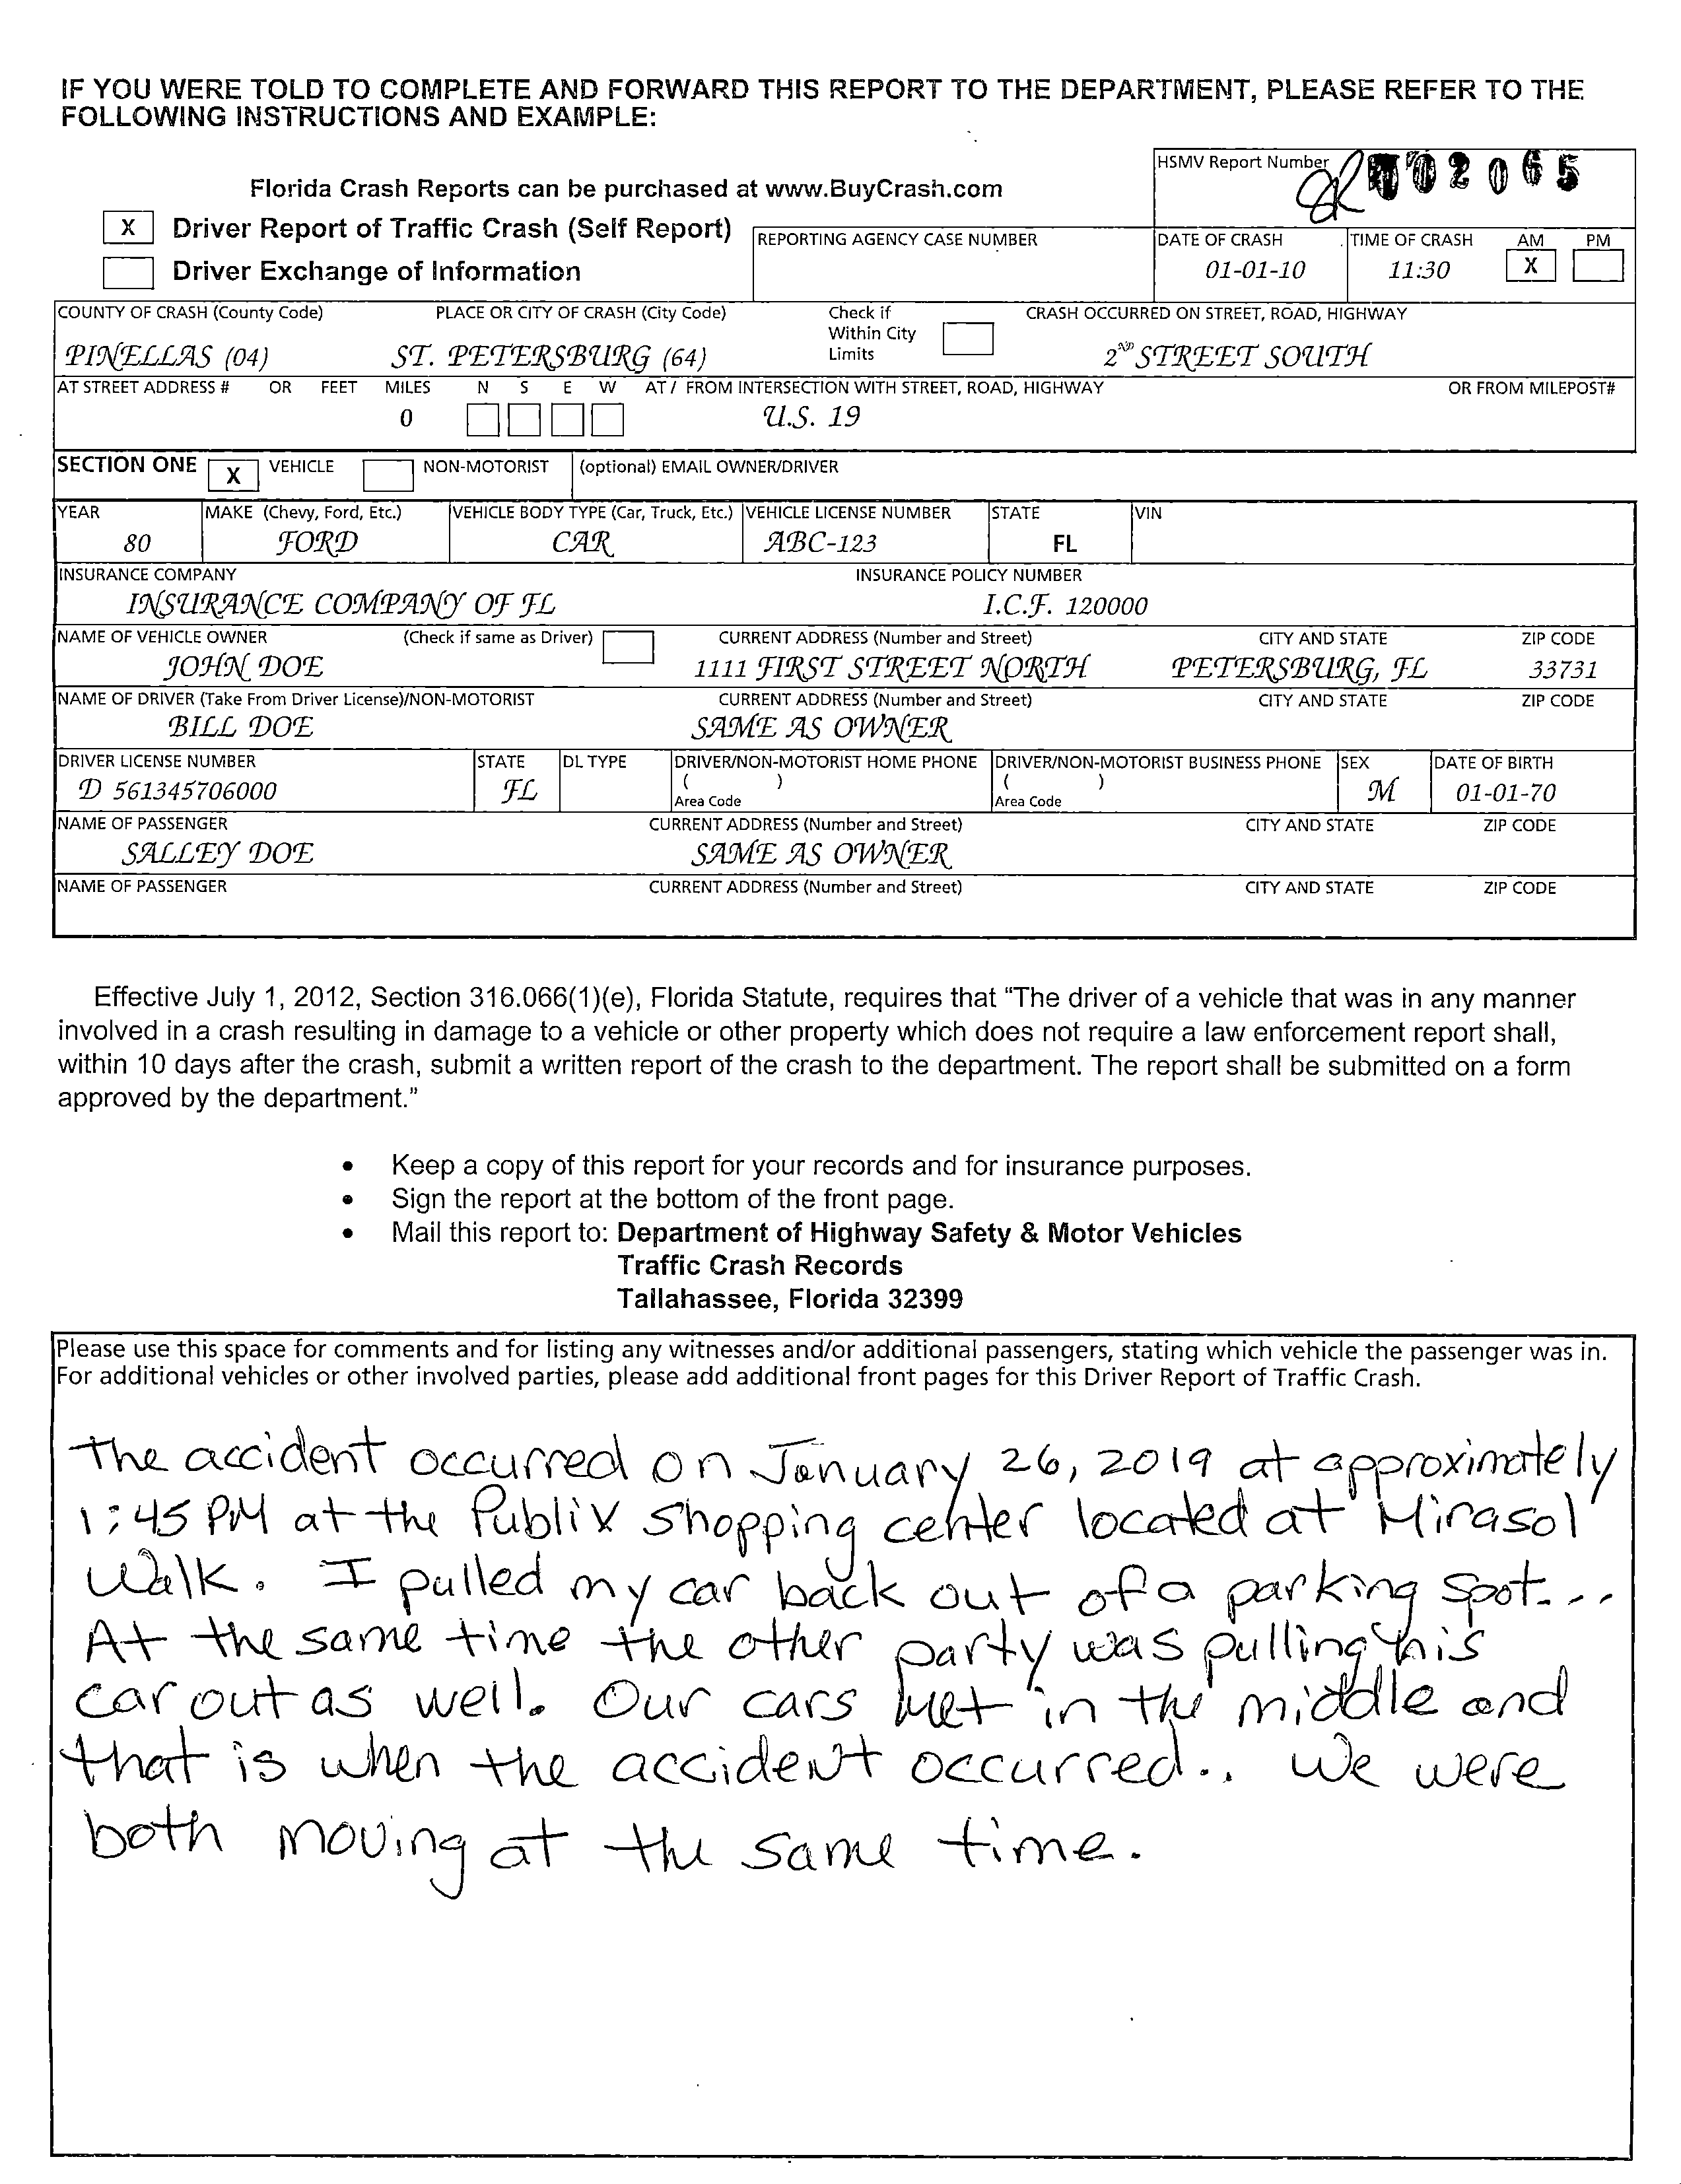 IF YOU WERE TOLD TO COMPLETE AND FORWARD THIS REPORT TO THE DEPARTMENT, PLEASE REFER TO THE
FOLLOWING INSTRUCTIONS AND EXAMPLE:
HSMV Report Number
02065
Florida Crash Reports can be purchased at www.BuyCrash.com
X Driver Report of Traffic Crash (Self Report)
Driver Exchange of Information
REPORTING AGENCY CASE NUMBER DATE OF CRASH TIME OF CRASH AM PM
01-01-10 11:30 X
COUNTY OF CRASH (County Code) PLACE OR CITY OF CRASH (City Code) Check if Within City Limits CRASH OCCURRED ON STREET, ROAD, HIGHWAY
PINELLAS (04) ST. PETERSBURG (64) 2ND STREET SOUTH
AT STREET ADDRESS # OR FEET MILES N S E W AT / FROM INTERSECTION WITH STREET, ROAD, HIGHWAY OR FROM MILEPOST#
0 U.S. 19
SECTION ONE X VEHICLE NON-MOTORIST (optional) EMAIL OWNER/DRIVER
YEAR MAKE (Chevy, Ford, Etc.) VEHICLE BODY TYPE (Car, Truck, Etc.) VEHICLE LICENSE NUMBER STATE VIN
80 FORD CAR ABC-123 FL
INSURANCE COMPANY INSURANCE POLICY NUMBER
INSURANCE COMPANY OF FL I.C.F. 120000
NAME OF VEHICLE OWNER (Check if same as Driver) CURRENT ADDRESS (Number and Street) CITY AND STATE ZIP CODE
JOHN DOE 1111 FIRST STREET NORTH PETERSBURG, FL 33731
NAME OF DRIVER (Take From Driver License)/NON-MOTORIST CURRENT ADDRESS (Number and Street) CITY AND STATE ZIP CODE
BILL DOE SAME AS OWNER
DRIVER LICENSE NUMBER STATE DL TYPE DRIVER/NON-MOTORIST HOME PHONE DRIVER/NON-MOTORIST BUSINESS PHONE SEX DATE OF BIRTH
D 561345706000 FL ( ) ( ) M 01-01-70
Area Code Area Code
NAME OF PASSENGER CURRENT ADDRESS (Number and Street) CITY AND STATE ZIP CODE
SALLEY DOE SAME AS OWNER
NAME OF PASSENGER CURRENT ADDRESS (Number and Street) CITY AND STATE ZIP CODE
Effective July 1, 2012, Section 316.066(1)(e), Florida Statute, requires that “The driver of a vehicle that was in any manner
involved in a crash resulting in damage to a vehicle or other property which does not require a law enforcement report shall,
within 10 days after the crash, submit a written report of the crash to the department. The report shall be submitted on a form
approved by the department.”
• Keep a copy of this report for your records and for insurance purposes.
• Sign the report at the bottom of the front page.
• Mail this report to: Department of Highway Safety & Motor Vehicles
Traffic Crash Records
Tallahassee, Florida 32399
Please use this space for comments and for listing any witnesses and/or additional passengers, stating which vehicle the passenger was in.
For additional vehicles or other involved parties, please add additional front pages for this Driver Report of Traffic Crash.
The accident occurred on January 26, 2019 at approximately
1:45 PM at the Publix shopping center located at Mirasol
Walk. I pulled my car back out of a parking spot...
At the same time the other party was pulling his
car out as well. Our cars met in the middle and
that is when the accident occurred.. We were
both moving at the same time.